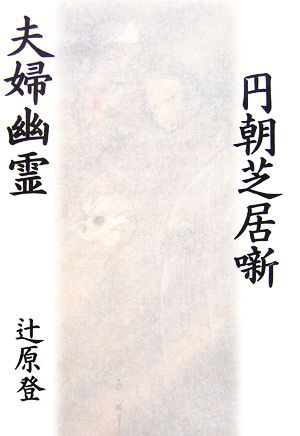 円朝芝居噺
夫婦幽霊
辻原登